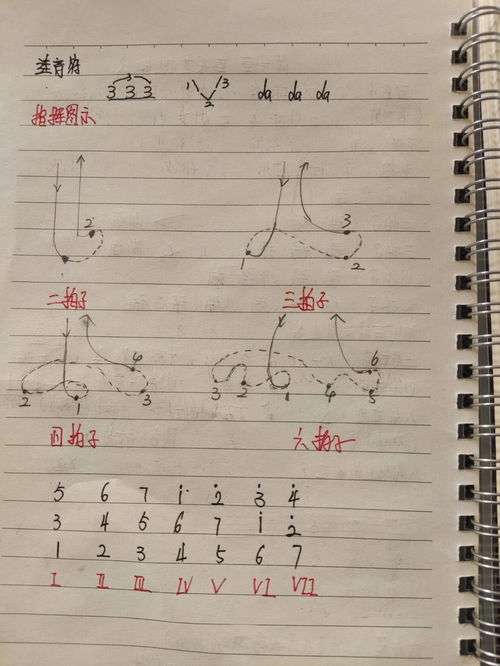 连音符
3
3 3 3 1 2 3 da da da
指挥图示
2
1
二拍子
3
1 2
三拍子
4
2 1 3
四拍子
6
3 2 1 4 5
六拍子
5 6 7 i 2̇ 3̇ 4̇
3 4 5 6 7 i 2̇
1 2 3 4 5 6 7
I II III IV V VI VII